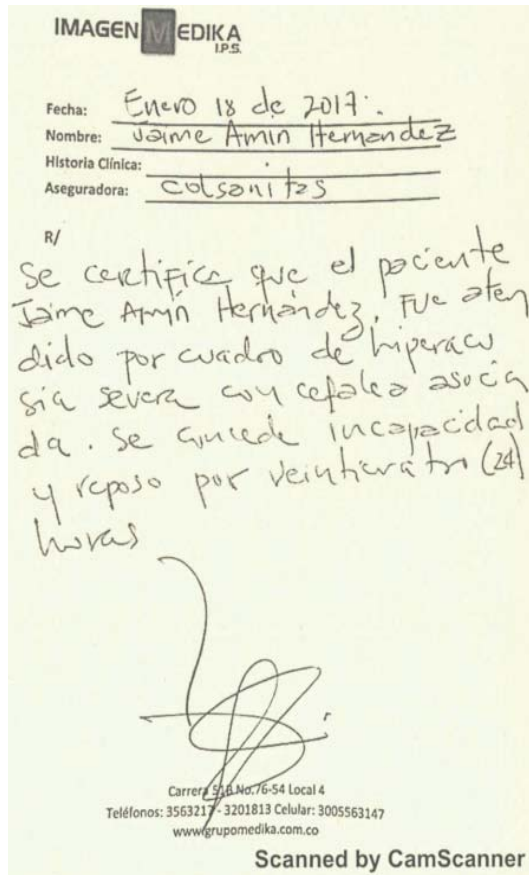 IMAGEN MEDIKA
I.P.S.
Fecha: Enero 18 de 2017.
Nombre: Jaime Amin Hernandez
Historia Clínica:
Aseguradora: Colsanitas
R/
Se certifica que el paciente
Jaime Amín Hernández, Fue aten
dido por cuadro de hiperacu
sia severa con cefalea asocia
da. Se concede incapacidad
y reposo por veinticuatro (24)
horas
Carrera 51B No.76-54 Local 4
Teléfonos: 3563217 - 3201813 Celular: 3005563147
www.grupomedika.com.co
Scanned by CamScanner